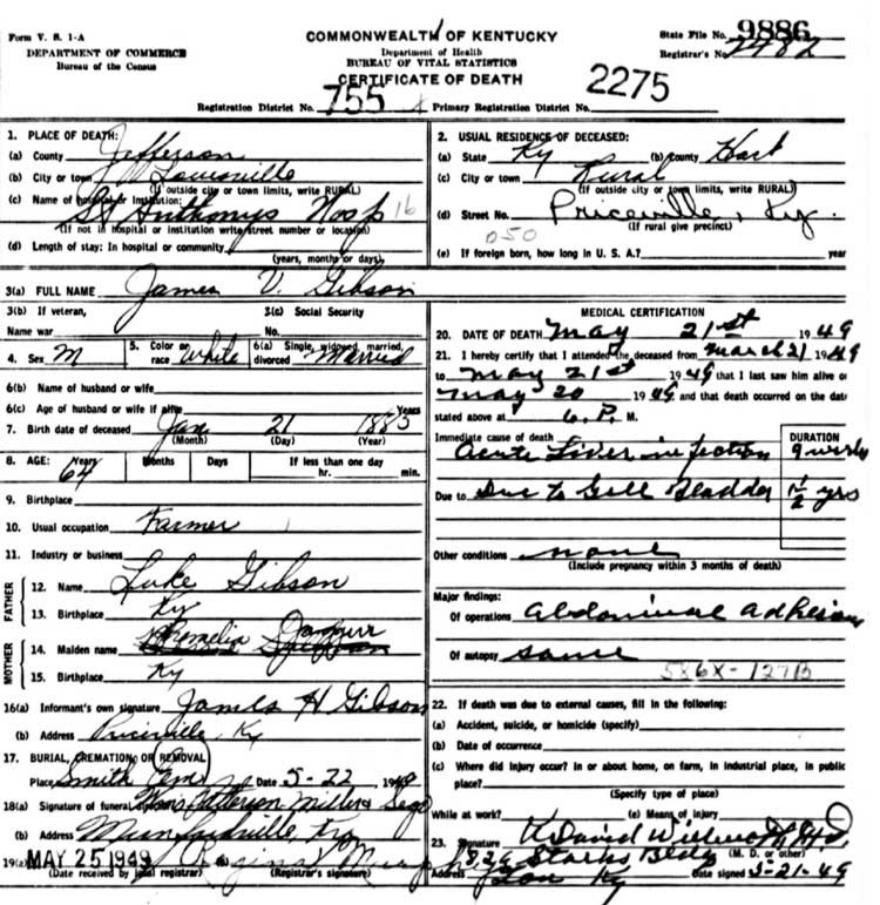 Form V. S. 1-A
DEPARTMENT OF COMMERCE
Bureau of the Census
COMMONWEALTH OF KENTUCKY
Department of Health
BUREAU OF VITAL STATISTICS
CERTIFICATE OF DEATH
State File No. 9886
Registrar's No. 2482
Registration District No. 755 Primary Registration District No. 2275
1. PLACE OF DEATH:
(a) County Jefferson
(b) City or town Louisville
(If outside city or town limits, write RURAL)
(c) Name of hospital or Institution: St Anthonys Hosp 16
(If not in hospital or institution write street number or location)
(d) Length of stay: In hospital or community
(years, months or days)
2. USUAL RESIDENCE OF DECEASED:
(a) State Ky (b) County Hart
(c) City or town Rural
(If outside city or town limits, write RURAL)
(d) Street No. Priceville, Ky.
(If rural give precinct)
050
(e) If foreign born, how long in U. S. A.? year
3(a) FULL NAME James V. Gibson
3(b) If veteran,
Name war
3(c) Social Security
No.
4. Sex M
5. Color or race White
6(a) Single, widowed, married, divorced Married
6(b) Name of husband or wife
6(c) Age of husband or wife if alive Years
7. Birth date of deceased Jan 21 1885
(Month) (Day) (Year)
8. AGE: Years 64 Months Days If less than one day
hr. min.
9. Birthplace
10. Usual occupation Farmer
11. Industry or business
FATHER
12. Name Luke Gibson
13. Birthplace Ky
MOTHER
14. Maiden name
15. Birthplace Ky
16(a) Informant's own signature James H Gibson
(b) Address Priceville, Ky
17. BURIAL, CREMATION OR REMOVAL
Place Smith Cem Date 5-22, 1949
18(a) Signature of funeral director
(b) Address Munfordville, Ky
19(a) MAY 25 1949
(Date received by local registrar) (Registrar's signature)
MEDICAL CERTIFICATION
20. DATE OF DEATH May 21st 1949
21. I hereby certify that I attended the deceased from March 21 1949
to May 21st 1949 that I last saw him alive on
May 20 1949 and that death occurred on the date
stated above at 6. P. M.
Immediate cause of death
Acute Liver infection
DURATION
9 weeks
Due to Due to Gall Bladder 1 1/2 yrs
Other conditions none
(Include pregnancy within 3 months of death)
Major findings:
Of operations Abdominal adhesions
Of autopsy same
586X-127B
22. If death was due to external causes, fill in the following:
(a) Accident, suicide, or homicide (specify)
(b) Date of occurrence
(c) Where did injury occur? In or about home, on farm, in industrial place, in public
place?
(Specify type of place)
While at work? (e) Means of injury
23. Signature K David Wilmoth M.D.
(M. D. or other)
Address 826 Starks Bldg
Lou Ky Date signed 5-21-49